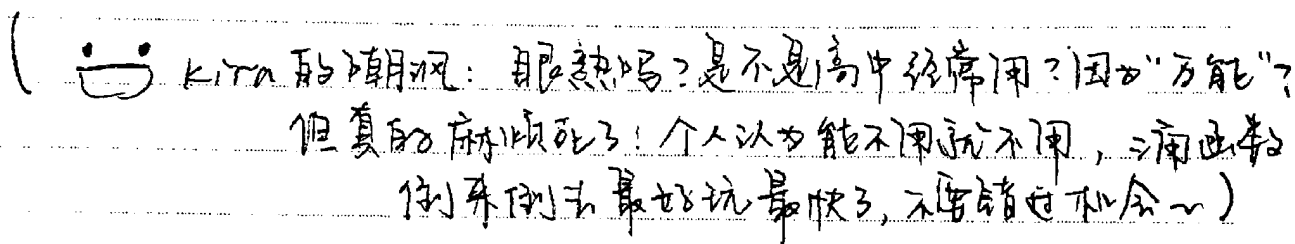 ( Kira的嘲讽：眼熟吗？是不是高中经常用？因为"万能"？
但真的麻烦死了！个人认为能不用就不用，三角函数
倒来倒去最好玩最快了，不要错过机会~)